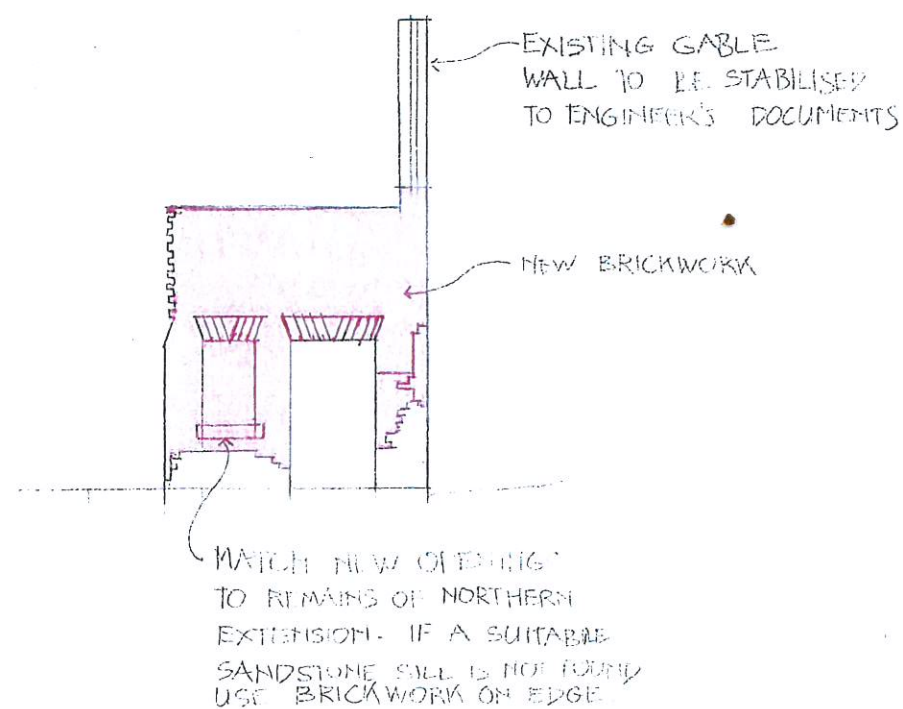 EXISTING GABLE
WALL TO BE STABILISED
TO ENGINEER'S DOCUMENTS
NEW BRICKWORK
MATCH NEW OPENING
TO REMAINS OF NORTHERN
EXTENSION. IF A SUITABLE
SANDSTONE SILL IS NOT FOUND
USE BRICKWORK ON EDGE